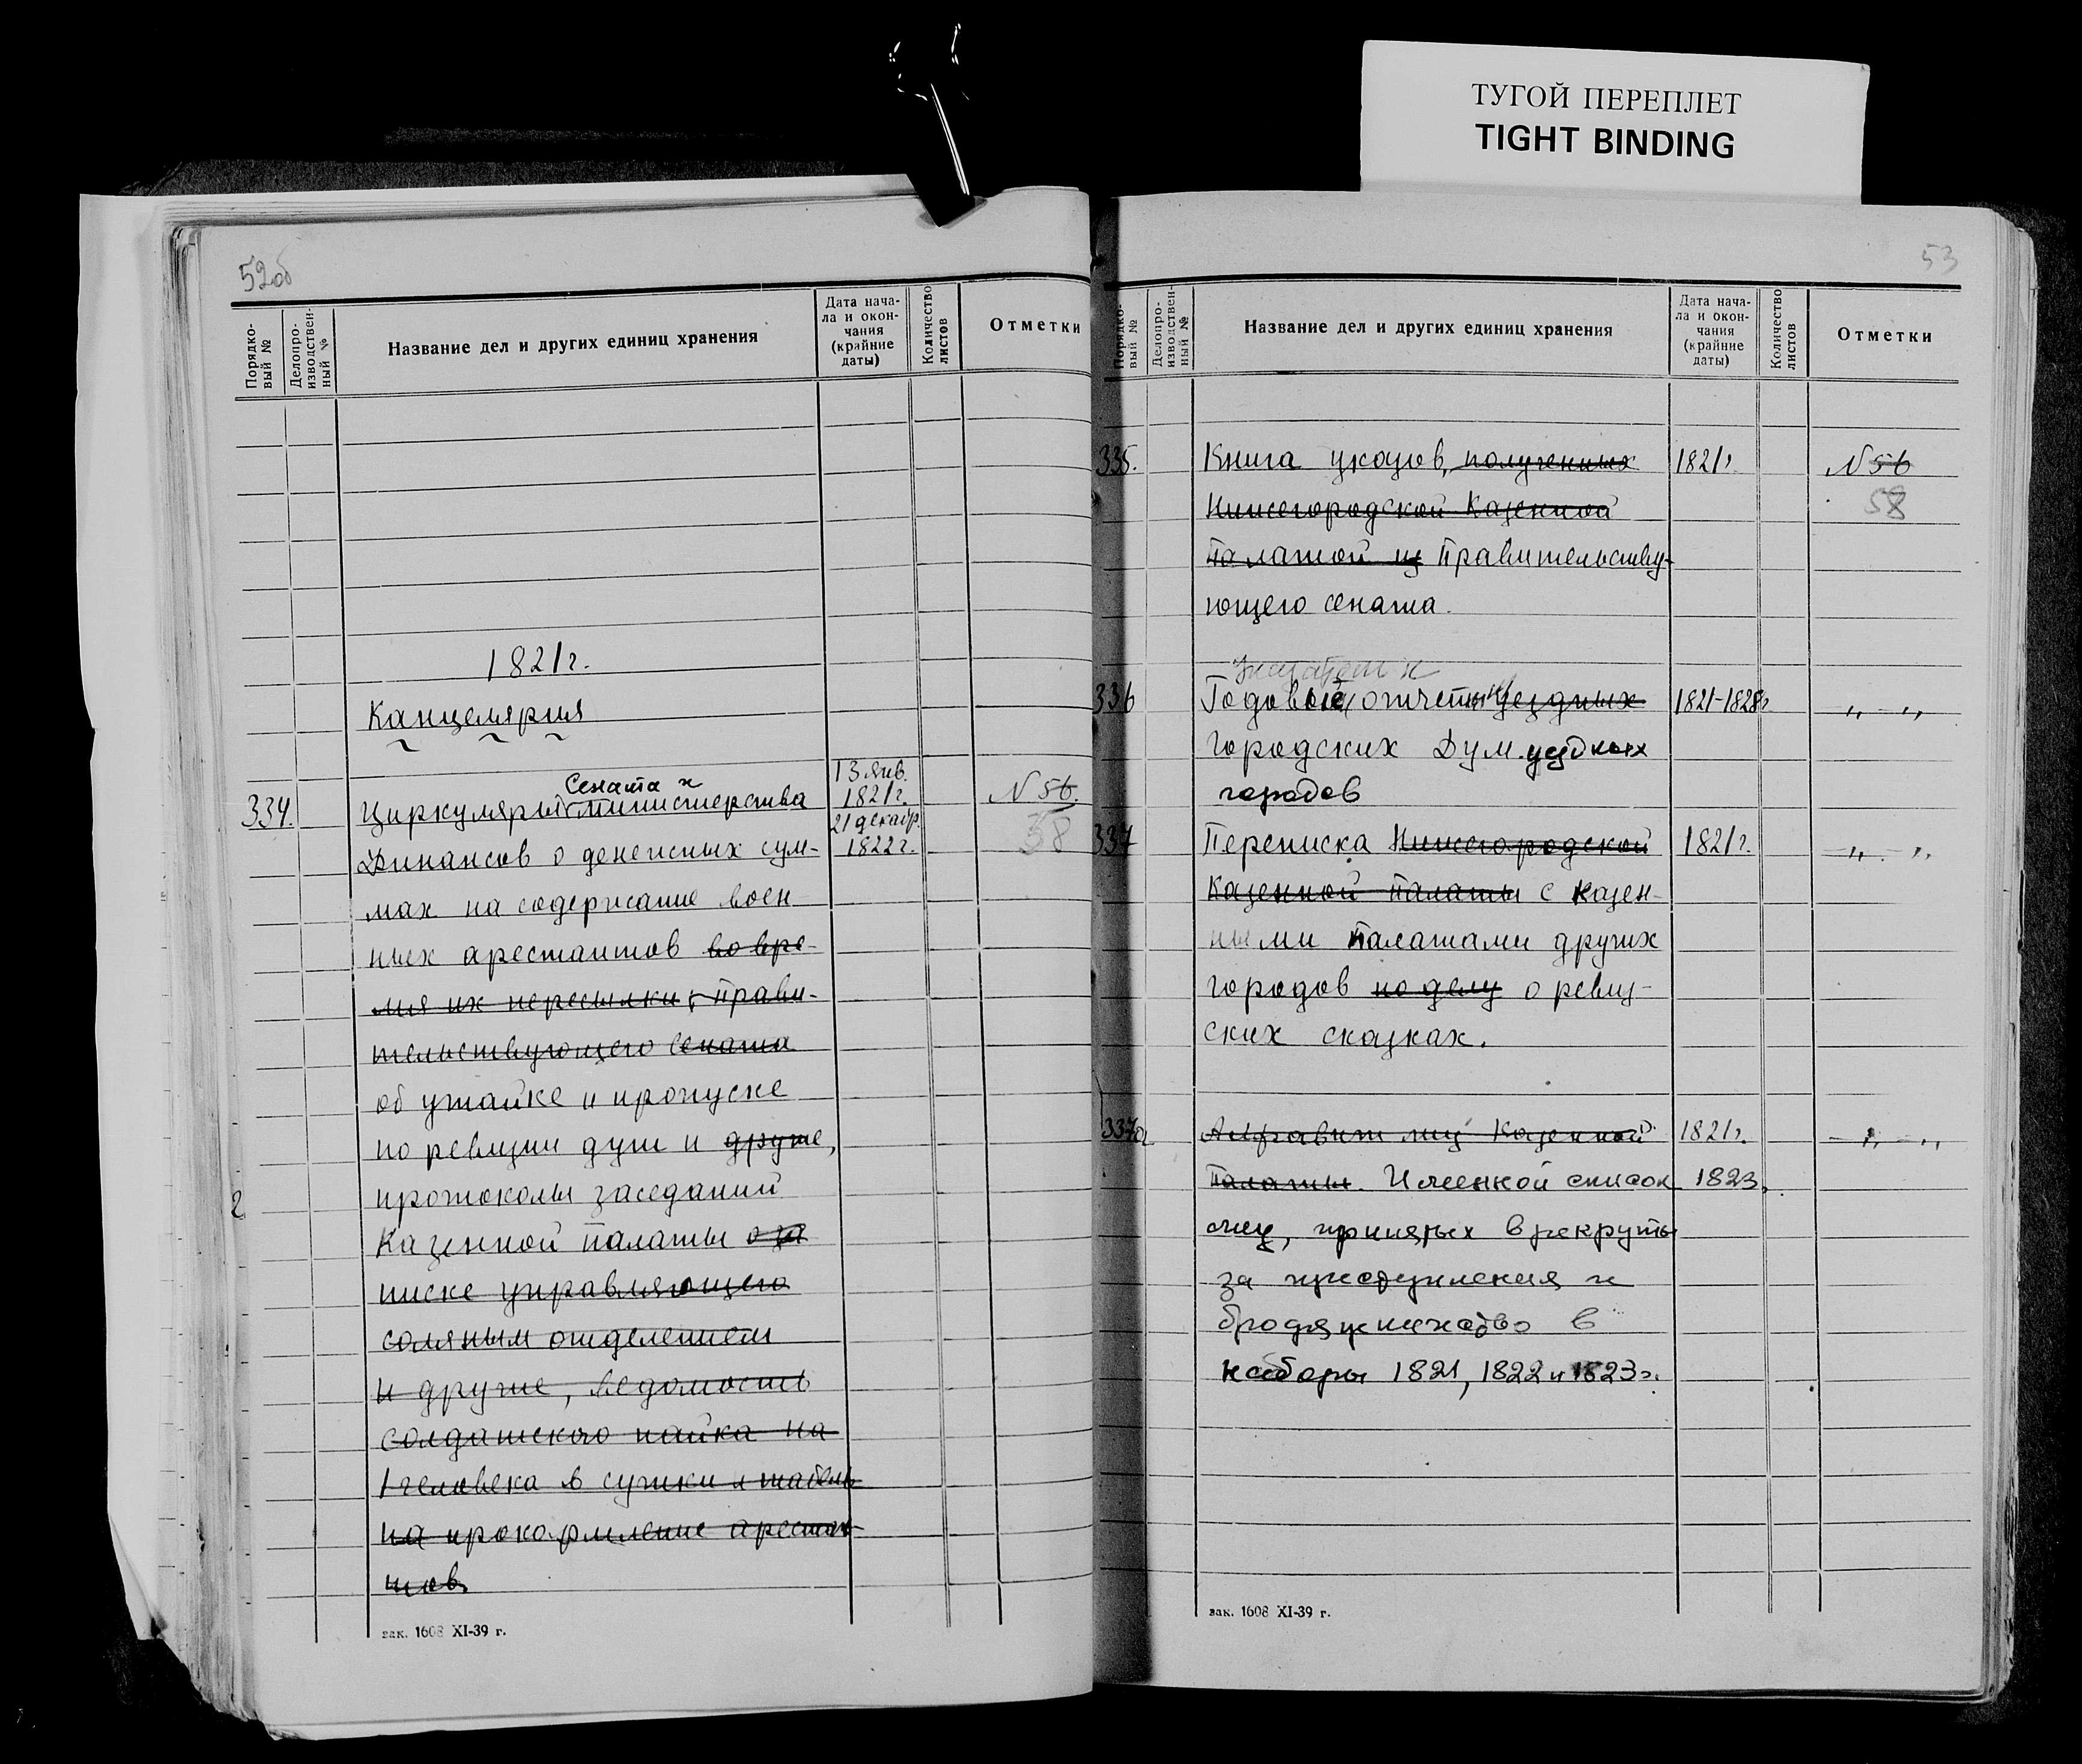 ТУГОЙ ПЕРЕПЛЕТ
TIGHT BINDING
52об
Порядко-
вый №
Делопро-
изводствен-
ный №
Название дел и других единиц хранения
Дата нача-
ла и окон-
чания
(крайние
даты)
Количество
листов
Отметки
1821г.
Канцелярия
334.
Сената и
Циркуляры министерства
Финансов о денежных сум-
мах на содержание воен-
ных арестантов во вре-
мя их пересылки, прави-
тельствующего сената
об утайке и пропуске
по ревизии душ и другие,
протоколы заседаний
Казенной палаты о за
писке управляющего
соляным отделением
и другие, ведомость
солдатского пайка на
1 человека в сутки и табель
на прокормление арестан-
тов
13 янв.
1821г.
21 декабр.
1822г.
N 56.
58
2
зак. 1608 XI-39 г.
53
Порядко-
вый №
Делопро-
изводствен-
ный №
Название дел и других единиц хранения
Дата нача-
ла и окон-
чания
(крайние
даты)
Количество
листов
Отметки
335.
Книга указов, полученных
Нижегородской Казенной
палатой из Правительству-
ющего сената.
1821г.
N 56
58
336
Годовые отчеты уездных
городских Дум уездных
городов
1821-1828г.
„ „
337
Переписка Нижегородской
Казенной палаты с Казен-
ными палатами других
городов по делу о ревиз-
ских сказках.
1821г.
– „ – „
337а
Алфавит лиц Казенной
палаты. Именной список
лиц, принятых в рекруты
за преступления и
бродяжничество в
наборы 1821, 1822 и 1823г.
1821г.
1823.
– „ – „
зак. 1608 XI-39 г.